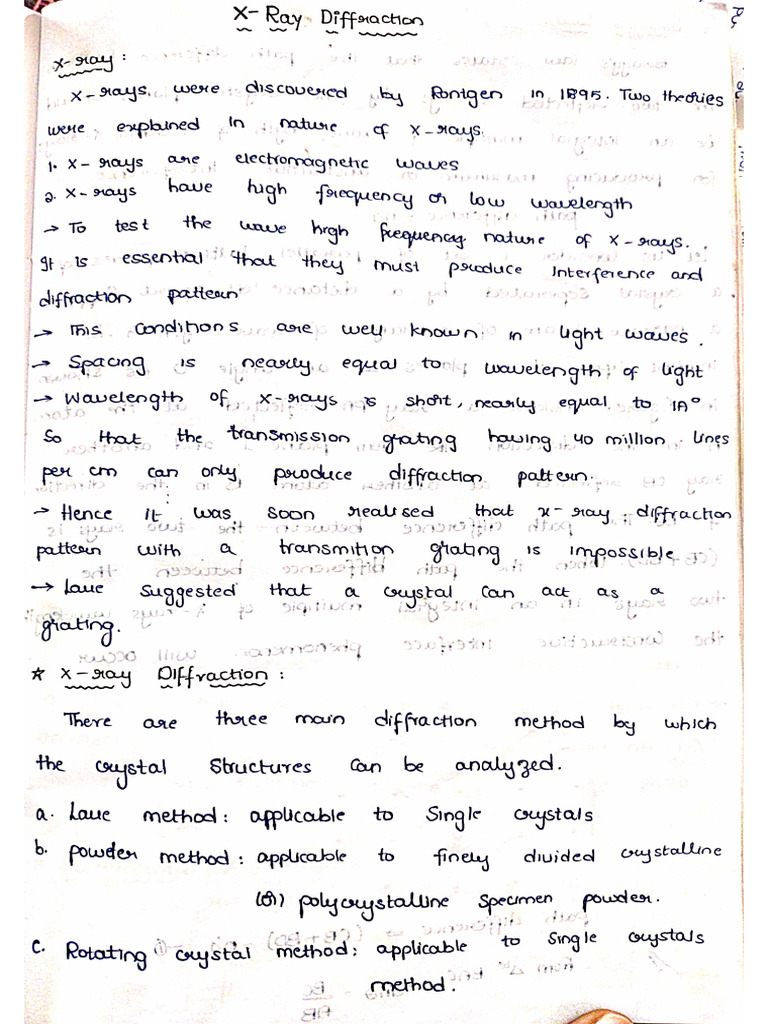 X-Ray Diffraction
X-ray:
X-rays were discovered by Rontgen in 1895. Two theories
were explained in nature of X-rays.
1. X-rays are electromagnetic waves
2. X-rays have high frequency or low wavelength
→ To test the wave high frequency nature of X-rays.
It is essential that they must produce interference and
diffraction pattern
→ This conditions are well known in light waves.
→ Spacing is nearly equal to wavelength of light
→ Wavelength of X-rays is short, nearly equal to 1A°
So that the transmission grating having 40 million lines
per cm can only produce diffraction pattern.
→ Hence it was soon realised that x-ray diffraction
pattern with a transmition grating is impossible
→ Laue suggested that a crystal can act as a
grating.
* X-ray Diffraction:
There are three main diffraction method by which
the crystal structures can be analyzed.
a. Laue method: applicable to Single crystals
b. powder method: applicable to finely divided crystalline
(or) polycrystalline specimen powder.
c. Rotating crystal method: applicable to single crystals
method.